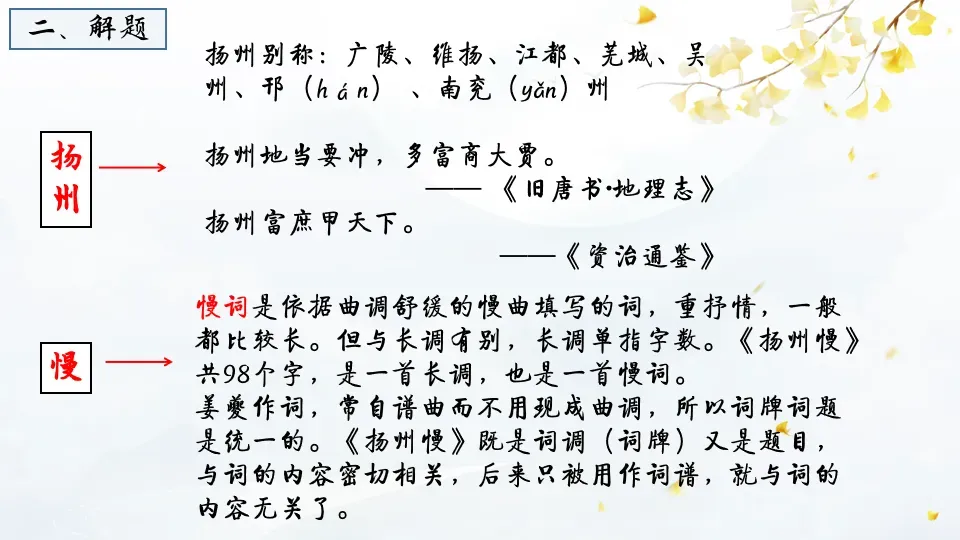 二、解题
扬州别称：广陵、维扬、江都、芜城、吴
州、邗（hán）、南兖（yǎn）州
扬州
扬州地当要冲，多富商大贾。
——《旧唐书·地理志》
扬州富庶甲天下。
——《资治通鉴》
慢
慢词是依据曲调舒缓的慢曲填写的词，重抒情，一般
都比较长。但与长调有别，长调单指字数。《扬州慢》
共98个字，是一首长调，也是一首慢词。
姜夔作词，常自谱曲而不用现成曲调，所以词牌词题
是统一的。《扬州慢》既是词调（词牌）又是题目，
与词的内容密切相关，后来只被用作词谱，就与词的
内容无关了。